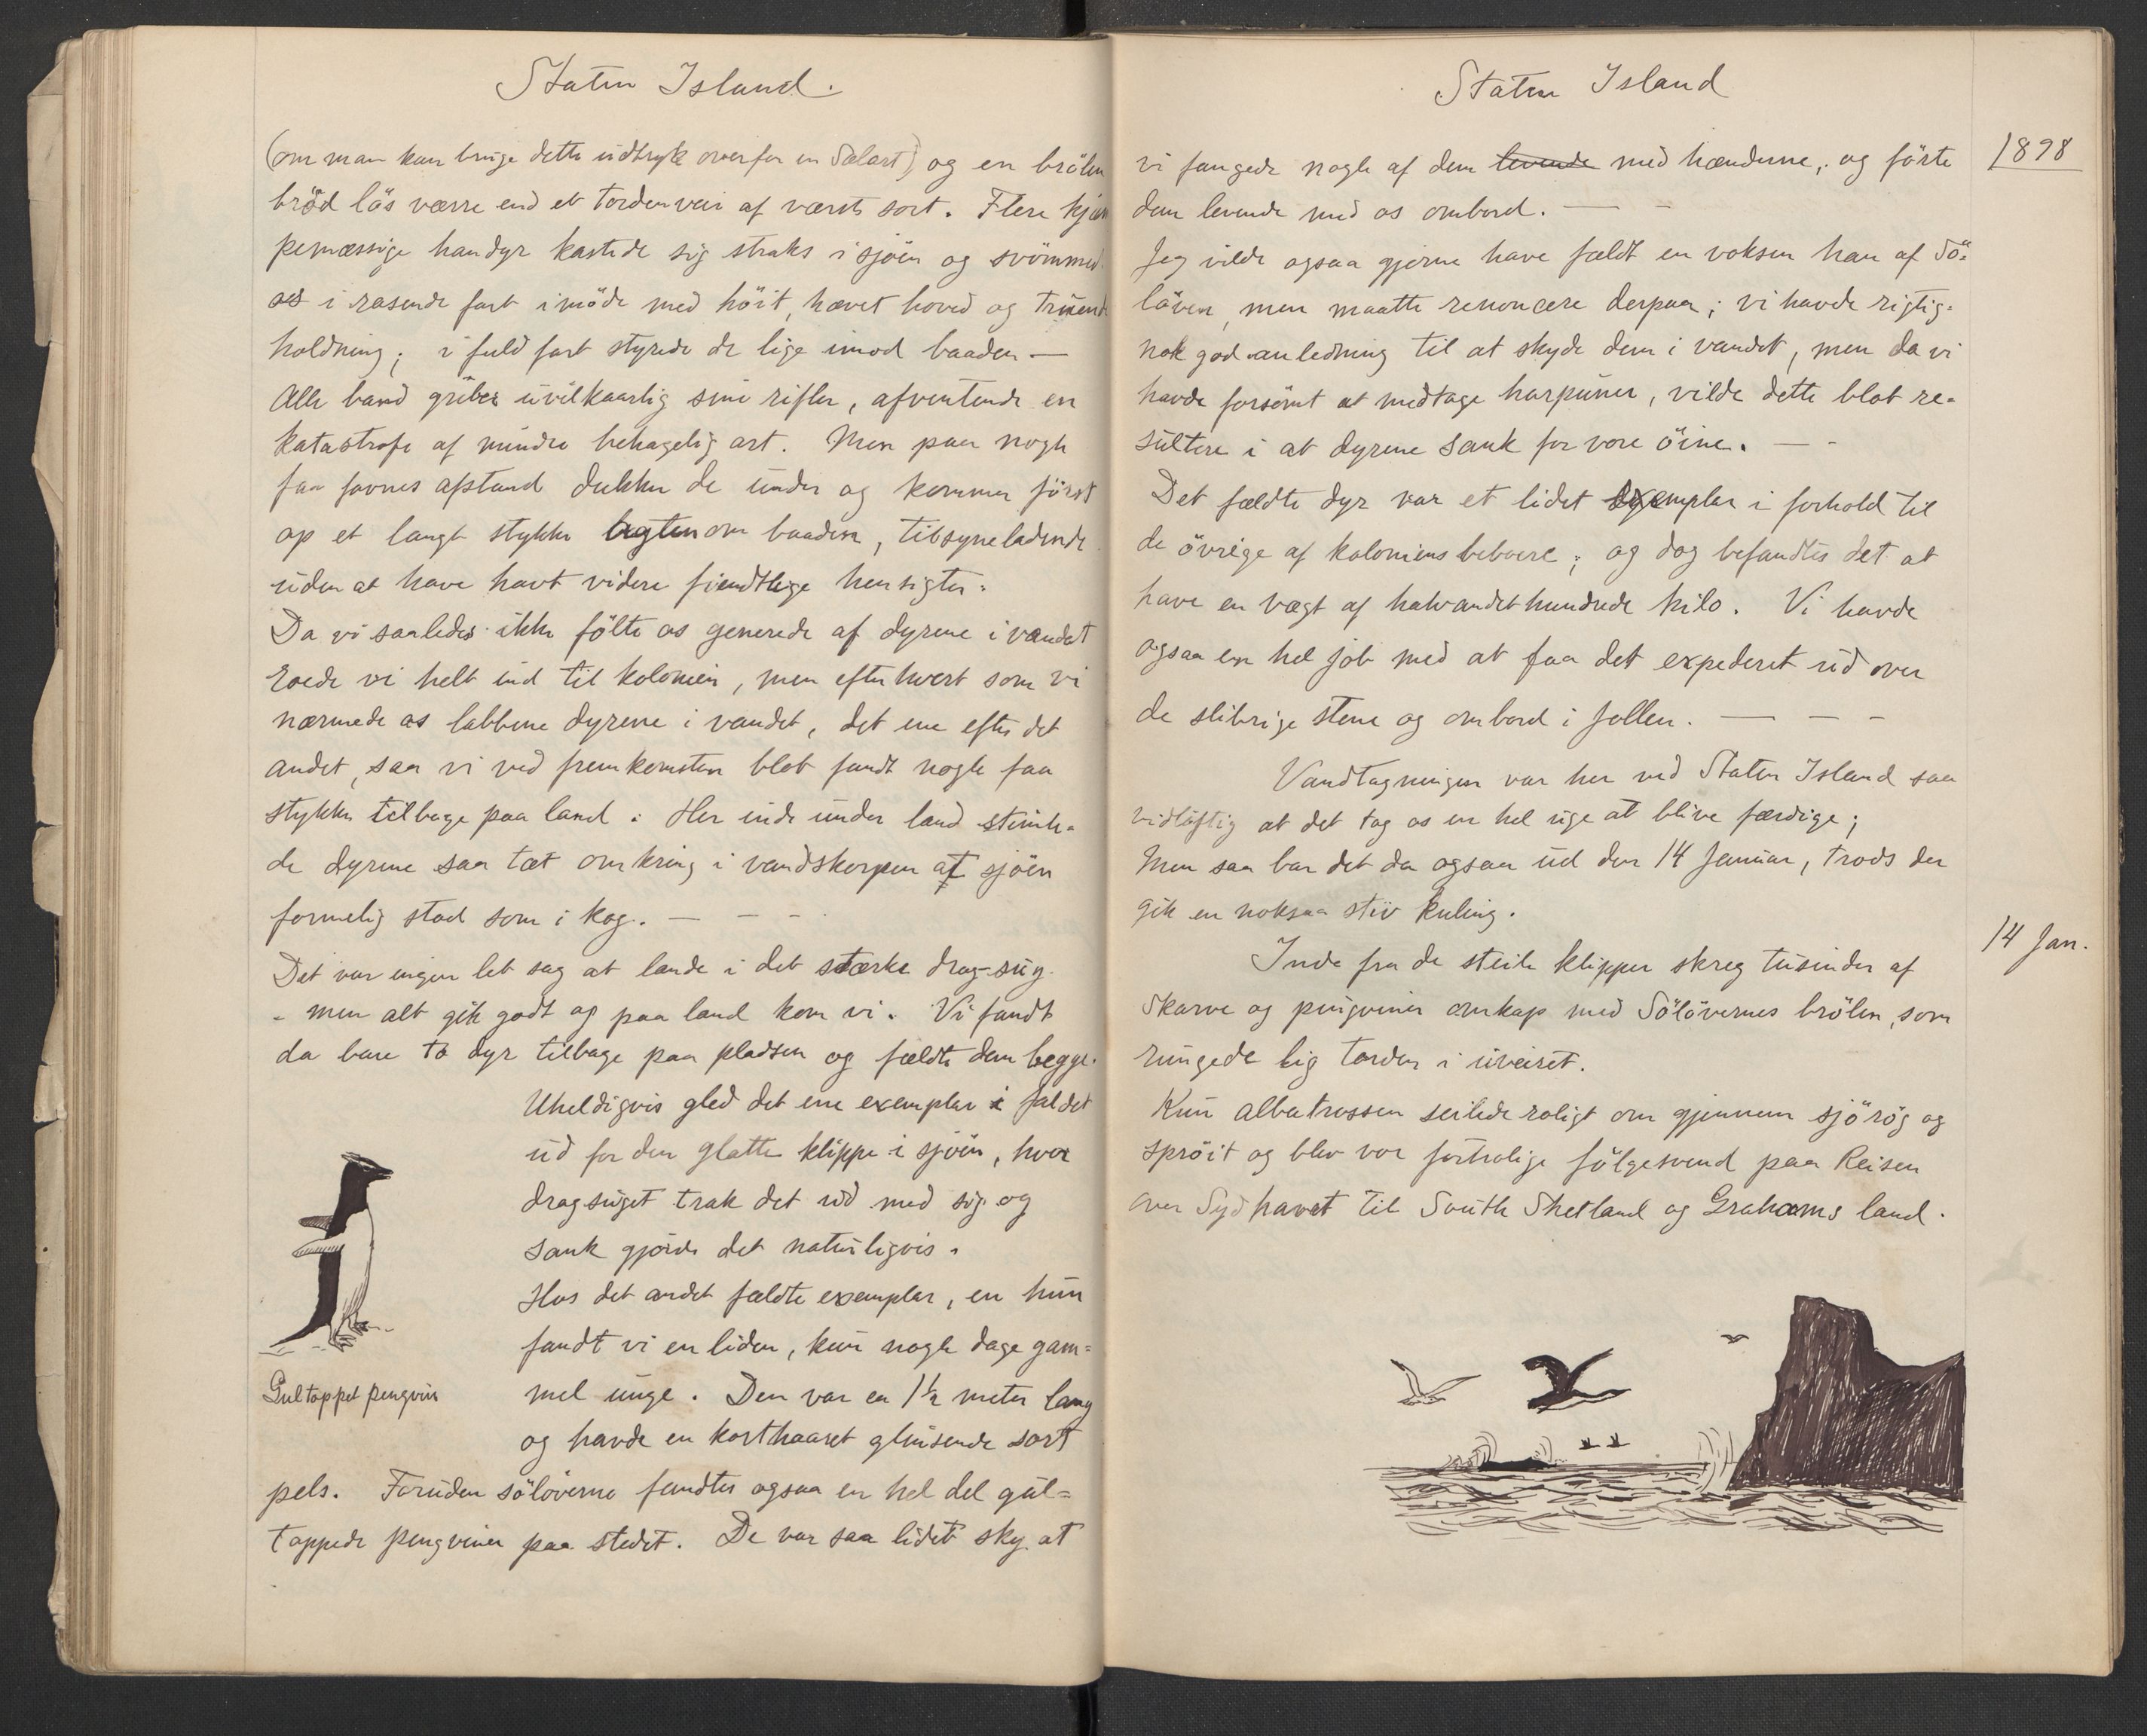 Staten Island.
(om man kan bruge dette udtryk overfor en Sælart) og en brölen
bröd lös værre end et tordenveir af værste sort. Flere kjæm
pemæssige handyr kastede sig straks i sjöen og svömmed
os i rasende fart imöde med höit, hævet hoved og truende
holdning; i fuld fart styrede de lige imod baaden —
Alle band griber uvilkaarlig sine rifler, afventende en
katastrofe af mindre behagelig art. Men paa nogle
faa favnes afstand dukker de under og kommer först
op et langt stykke agtenom baaden, tilsyneladende
uden at have havt videre fiendtlige hensigter.
Da vi saaledes ikke fölte os generede af dyrene i vandet
roede vi helt ind til kolonien, men efterhvert som vi
nærmede os labbene dyrene i vandet, det ene efter det
andet, saa vi ved fremkomsten blot fandt nogle faa
stykker tilbage paa land. Her inde under land stimle-
de dyrene saa tæt omkring i vandskorpen at sjöen
formelig stod som i kog. — — -
Det var ingen let sag at lande i det stærke drag-sug.
- men alt gik godt og paa land kom vi. Vi fandt
da bare to dyr tilbage paa pladsen og fældte dem begge.
Uheldigvis gled det ene exemplar i faldet
ud for den glatte klippe i sjöen, hvor
dragsuget trak det ud med sig og
sank gjorde det naturligvis.
Hos det andet fældte exemplar, en hun
fandt vi en liden, kun nogle dage gam=
mel unge. Den var ca 1½ meter lang
og havde en korthaaret glinsende sort
Gultoppet pengvin
pels. Foruden sölöverne fandtes ogsaa en hel del gul=
toppede pengviner paa stedet. De var saa lidet sky at
Staten Island
1898
vi fangede nogle af dem levende med hænderne, og förte
dem levende med os ombord. — -
Jeg vilde ogsaa gjerne have fældt en voksen han af Sö=
löven, men maatte renoncere derpaa; vi havde rigtig-
nok god anledning til at skyde dem i vandet, men da vi
havde forsömt at medtage harpuner, vilde dette blot re-
sultere i at dyrene sank for vore öine. — -
Det fældte dyr var et lidet exemplar i forhold til
de övrige af koloniens beboere; og dog befandtes det at
have en vægt af halvandethundrede kilo. Vi havde
ogsaa en hel job med at faa det expederet ud over
de slibrige stene og ombord i jollen. — — -
Vandtagningen var her ved Staten Island saa
vidlöftig at det tog os en hel uge at blive færdige;
Men saa bar det da ogsaa ud den 14 Januar, trods der
gik en noksaa stiv kuling.
14 Jan.
Inde fra de steile klipper skreg tusinder af
Skarve og pingviner omkap med Sölövernes brölen, som
rungede lig torden i uveiret.
Kun albatrossen seilede roligt om gjennem sjörög og
spröit og blev vor fortrolige fölgesvend paa Reisen
over Sydhavet til South Shetland og Grahams land.